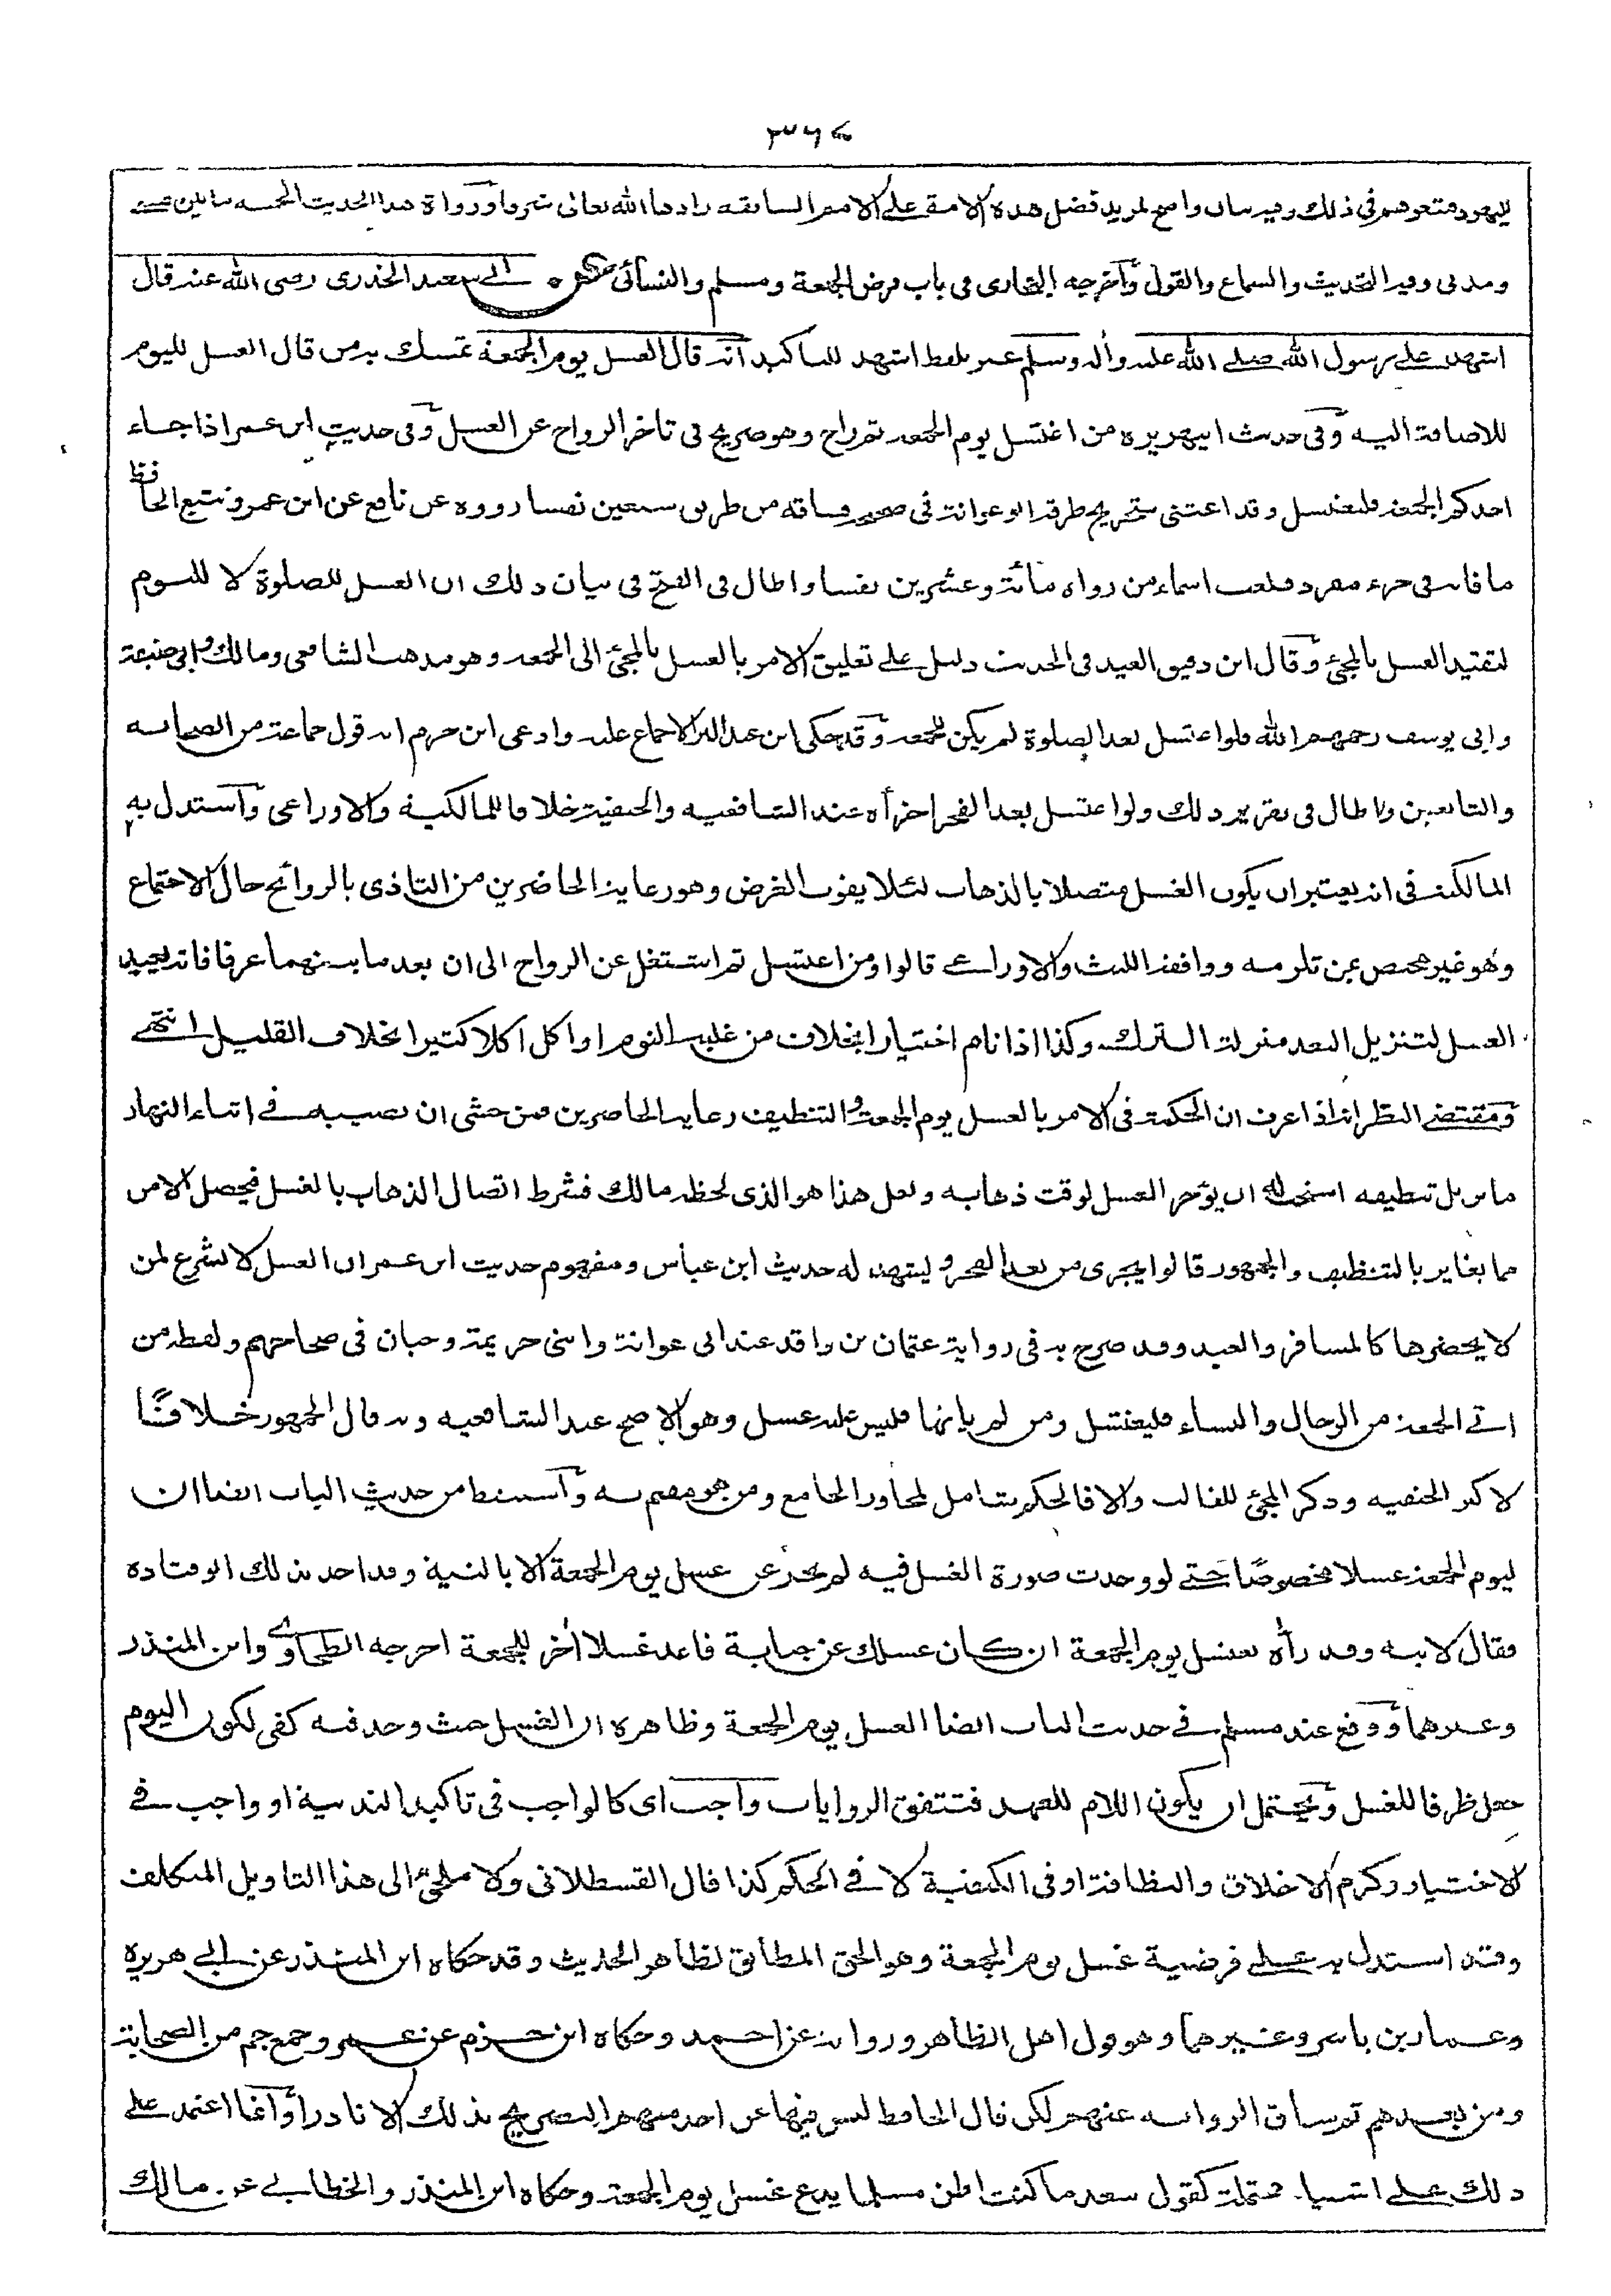 ٣٦٤
لليهود متبوعهم في ذلك وفيه بيان واضح لمزيد فضل هذه الامة على الامم السابقة زادها الله تعالى شرفا ورواة هذا الحديث الخمسة ما بين
ومدني وفيه التحديث والسماع والقول وأخرجه البخارى فى باب فرض الجمعة ومسلم والنسائى عن ابي سعيد الخدرى رضى الله عنه قال
اشهد على رسول الله صلى الله عليه وأله وسلم عبر بلفظ اشهد للتاكيد أنه قال الغسل يوم الجمعة تمسك به من قال الغسل لليوم
للاضافة اليه وفى حديث ابيهريره من اغتسل يوم الجمعه ثم راح وهو صريح فى تاخر الرواح عن الغسل وفى حديث ابن عمر اذا جاء
احدكم الجمعة فليغتسل وقد اعتنى بتخريج طرقه ابو عوانة فى صحيحه فساقه من طريق سبعين نفسا رووه عن نافع عن ابن عمر وتتبع الحافظ
ما فاته فى جزء مفرد فبلغت اسماء من رواه مائة وعشرين نفسا واطال فى الفتح فى بيان ذلك ان الغسل للصلوة لا لليوم
لتقييد الغسل بالمجئ وقال ابن دقيق العيد فى الحديث دليل على تعليق الامر بالغسل بالمجئ الى الجمعه وهو مذهب الشافعى ومالك وابى حنيفة
وابى يوسف رحمهم الله فلو اغتسل بعد الصلوة لم يكن للجمعه وقد حكى ابن عبد البر الاجماع عليه وادعى ابن حزم انه قول جماعة من الصحابه
والتابعين واطال فى تقرير ذلك ولو اغتسل بعد الفجر اجزأه عند الشافعيه والحنفية خلافا للمالكية والاوزاعى وأستدل به
المالكية فى انه يعتبر ان يكون الغسل متصلا بالذهاب لئلا يفوت الغرض وهو رعاية الحاضرين من التاذى بالروائح حال الاجتماع
وهو غير مختص بمن تلزمه ووافقه الليث والاوزاعى قالوا ومن اغتسل ثم اشتغل عن الرواح الى ان بعد ما بينهما عرفا فانه يعيد
الغسل لتنزيل البعد منزلة الترك وكذا اذا نام اختيارا بخلاف من غلبه النوم او اكل اكلا كثيرا بخلاف القليل انتهى
ومقتضى النظر انه اذا عرف ان الحكمة فى الامر بالغسل يوم الجمعة والتنظيف رعاية الحاضرين فمن خشى ان يصيبه فى اثناء النهار
ما يزيل تنظيفه استحب له ان يؤخر الغسل لوقت ذهابه ولعل هذا هو الذى لحظه مالك فشرط اتصال الذهاب بالغسل فيحصل الامن
مما يغاير بالتنظيف والجمهور قالوا يجزى من بعد الفجر ويشهد له حديث ابن عباس ومفهوم حديث ابن عمر ان الغسل لا يشرع لمن
لا يحضرها كالمسافر والعبد وقد صرح به فى رواية عثمان بن واقد عند ابى عوانة وابنى خزيمة وحبان فى صحاحهم ولفظه من
اتى الجمعة من الرجال والنساء فليغتسل ومن لم ياتها فليس عليه غسل وهو الاصح عند الشافعيه وبه قال الجمهور خلافا
لاكثر الحنفيه وذكر المجئ للغالب والا فالحكم شامل لمجاور الجامع ومن هو مقيم به وأستنبط من حديث الباب ايضا ان
ليوم الجمعة غسلا مخصوصا حتى لو وجدت صورة الغسل فيه لم يجز عن غسل يوم الجمعة الا بالنية وقد اخذ بذلك ابو قتاده
فقال لابنه وقد رأه يغتسل يوم الجمعة ان كان غسلك عن جنابة فاعد غسلا أخر للجمعة اخرجه الطحاوى وابن المنذر
وغيرهما ووقع عند مسلم فى حديث الباب ايضا الغسل يوم الجمعة وظاهره ان الغسل حيث وجد فيه كفى لكون اليوم
جعل ظرفا للغسل ويحتمل ان يكون اللام للعهد فتتفق الروايات واجب اى كالواجب فى تاكيد الندبية او واجب فى
الاختيار وكرم الاخلاق والنظافة او فى الكيفية لا فى الحكم كذا قال القسطلانى ولا ملجئ الى هذا التاويل المتكلف
وقد استدل به على فرضية غسل يوم الجمعة وهو الحق المطابق لظاهر الحديث وقد حكاه ابن المنذر عن ابى هريره
وعمار بن ياسر وغيرهما وهو قول اهل الظاهر ورواية عن احمد وحكاه ابن حزم عن عمر وجمع جم من الصحابة
ومن بعدهم ثم ساق الروايه عنهم لكن قال الحافظ ليس فيها عن احد منهم التصريح بذلك الا نادرا وأنما اعتمد على
ذلك على اشياء محتملة كقول سعد ما كنت اظن مسلما يدع غسل يوم الجمعة وحكاه ابن المنذر والخطابى عن مالك